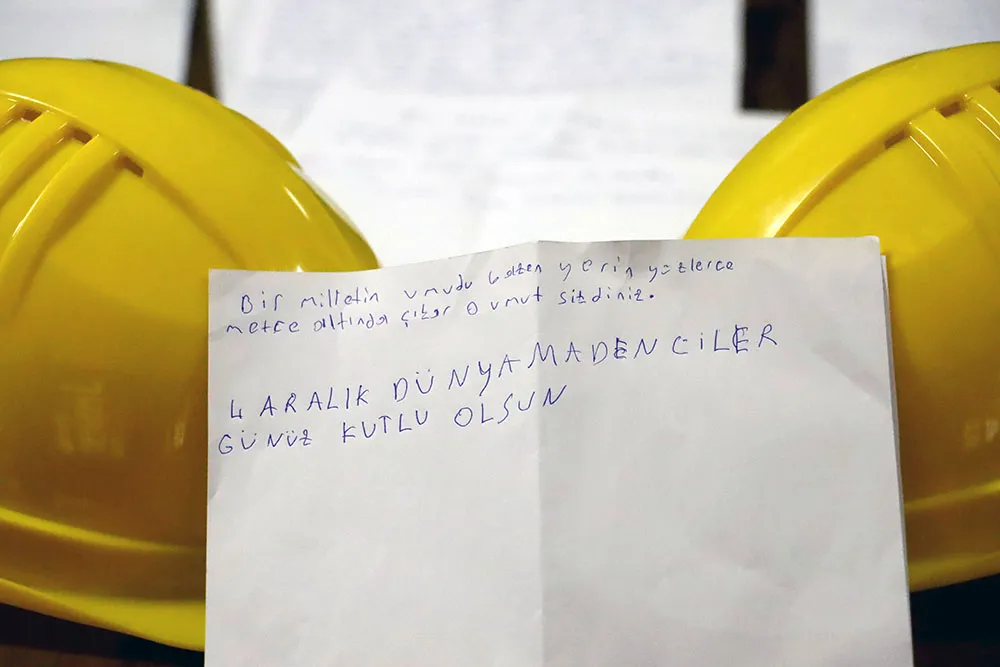 Bir milletin umudu bazen yerin yüzlerce
metre altında çıkar o umut sizdiniz.
4 ARALIK DÜNYA MADENCİLER
GÜNÜZ KUTLU OLSUN